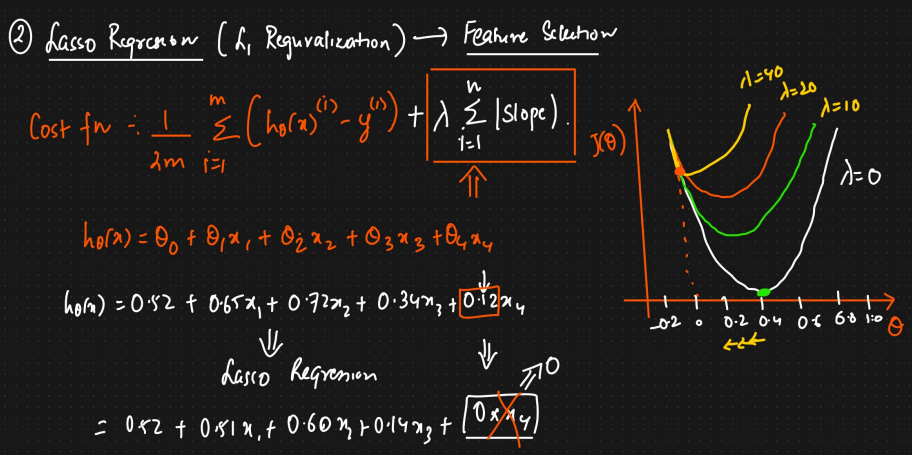 ② Lasso Regression (L₁ Reguralization) → Feature Selection
Cost fn ÷ 1/2m m Σ i=1 (hθ(x)^(i) - y^(i)) + λ n Σ i=1 |Slope).
⇑
hθ(x) = θ₀ + θ₁x₁ + θ₂x₂ + θ₃x₃ + θ₄x₄
hθ(x) = 0.52 + 0.65x₁ + 0.72x₂ + 0.34x₃ + 0.12x₄
⇓ ⇓
Lasso Regression ⇒ 0
= 0.52 + 0.51x₁ + 0.60x₂ + 0.14x₃ + 0xx₄
λ=40
λ=20
λ=10
λ=0
J(θ)
-0.2 0 0.2 0.4 0.6 0.8 1.0 θ